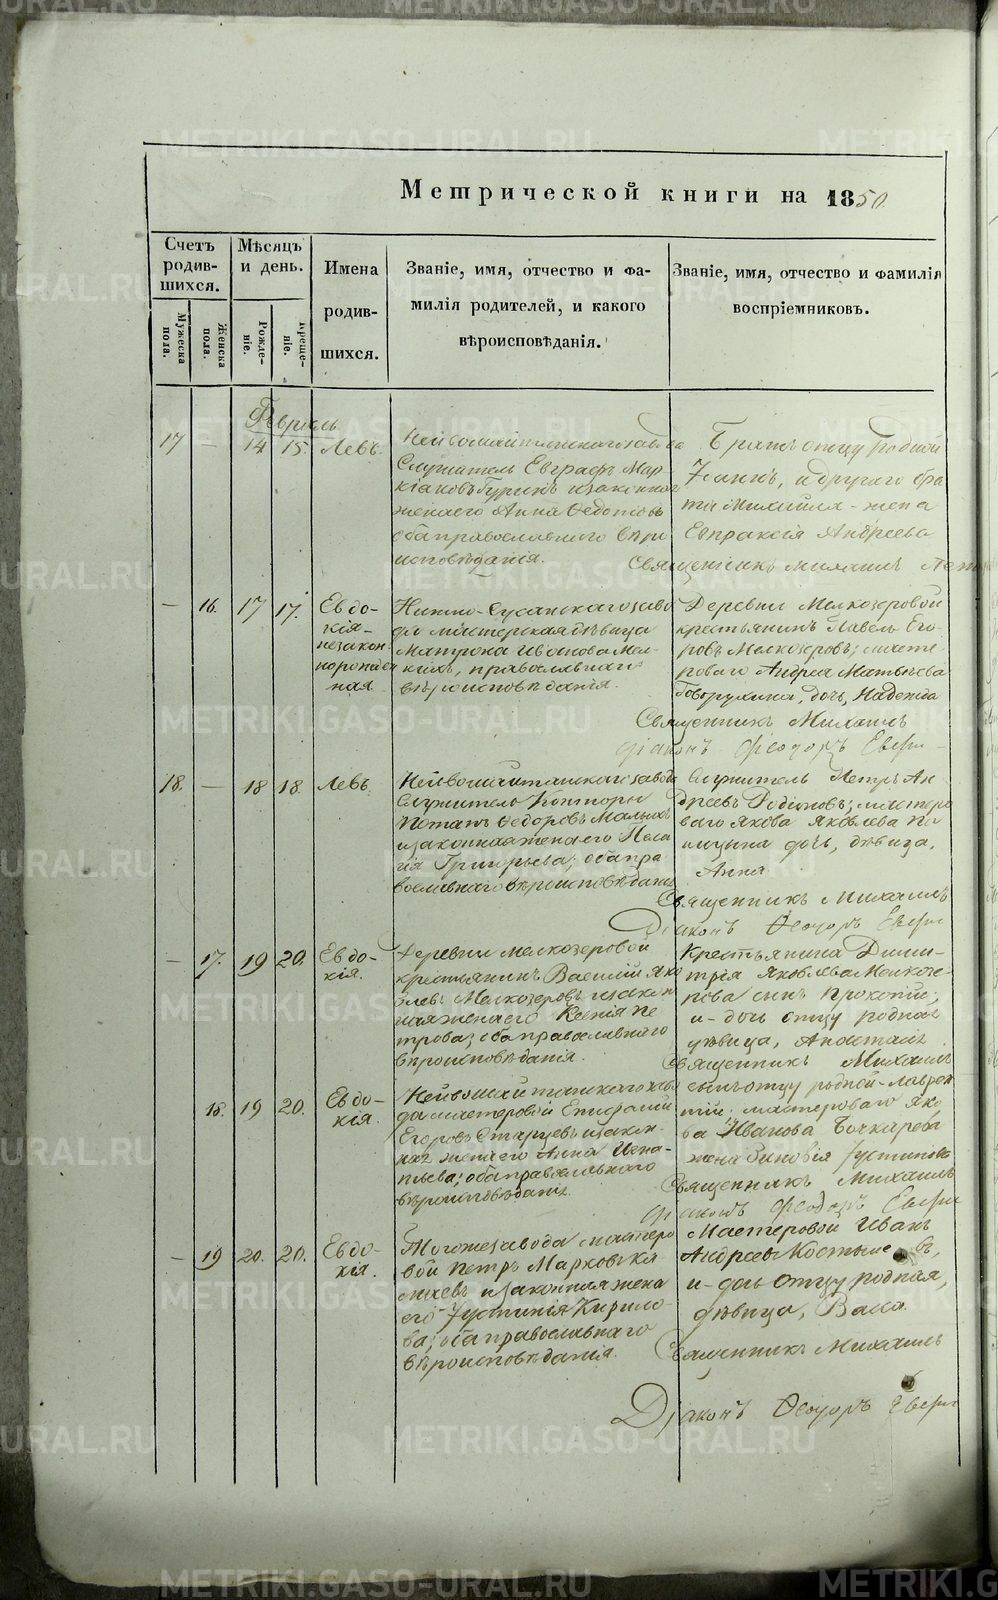 METRIKI.GASO-URAL.RU
Метрической книги на 1850.
Счетъ родив-шихся.
Мужеска пола.
Женска пола.
Мѣсяцъ и день.
Рожде-ніе.
Креще-ніе.
Имена родив-шихся.
Званіе, имя, отчество и фа-
милія родителей, и какого
вѣроисповѣданія.
Званіе, имя, отчество и фамилія
воспріемниковъ.
Февраль
17 — 14 15. Левъ.
Нейвошайтанскаго завода
Служитель Евграфъ Мар-
кіановъ и законная
жена его Анна Ѳедотова
оба православнаго вѣро
исповѣданія.
Братъ отцу родной
и другаго бра
та Михаила - жена
Евпраксія Андреева
Священникъ Михаилъ
— 16. 17 17. Евдо-
кія -
незакон
норожден
ная
Нижно-Сусанскаго заво
да мастерская дѣвица
Матрона Иванова
православнаго
вѣроисповѣданія.
Деревни Мелкозеровой
крестьянинъ Павелъ Его-
ровъ Мелкозеровъ; масте-
роваго Андрея Матвѣева
Говорухина, дочь, Надежда
Священникъ Михаилъ
Діаконъ Ѳеодоръ
18. — 18 18. Левъ.
Нейвошайтанскаго завода
Служитель Конторы
Потапъ Ѳедоровъ Малыхъ
и законная жена его Пела
гія Григорьева; оба пра
вославнаго вѣроисповѣданія
Служитель Петръ Ан
дреевъ Родіоновъ; мастеро
ваго Якова Яковлева
дочь, дѣвица,
Анна
Священникъ Михаилъ
Діаконъ Ѳеодоръ
— 17. 19 20. Евдо-
кія.
Деревни Мелкозеровой
крестьянинъ Василій Яко
влевъ Мелкозеровъ и закон
ная жена его Ксенія Пе
трова; оба православнаго
вѣроисповѣданія.
Крестьянина Дими-
трія Яковлева Мелкозе-
рова сынъ Прокопій;
и - дочь отцу родная
дѣвица,
Священникъ Михаилъ
18. 19 20. Евдо-
кія.
Нейвошайтанскаго заво
да мастеровой
Егоровъ Старцевъ и закон-
ная жена его Анна Игна-
тьева; оба православнаго
вѣроисповѣданія.
сынъ отцу родной - Лаврен
тій; мастероваго Яко-
ва Иванова Бочкарева
жена Іустинова
Священникъ Михаилъ
Діаконъ Ѳеодоръ
— 19 20. 20. Евдо-
кія.
Тогоже завода мастеро
вой Петръ Марковъ
и законная жена
его Іустинія Кирило-
ва; оба православнаго
вѣроисповѣданія.
Мастеровой Иванъ
Андреевъ
и - дочь отцу родная,
дѣвица, Васса.
Священникъ Михаилъ
Діаконъ Ѳеодоръ